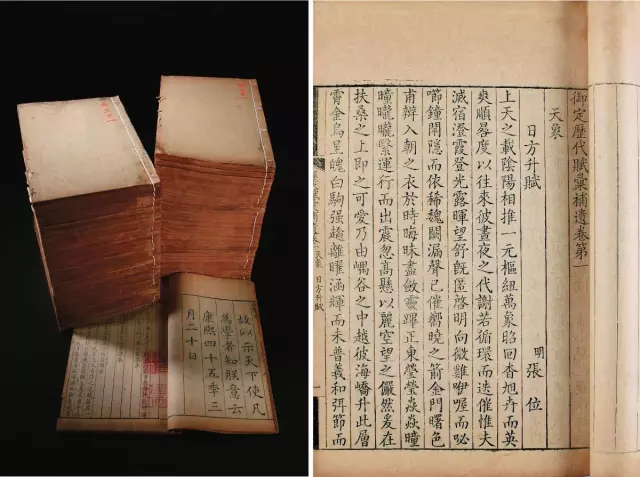 故以示天下使凡
為學者知朕意云
康熙四十五年三
月二十日
御定歷代賦彙補遺卷第一
天象
日方升賦 明 張位
上天之載陰陽相推一元樞紐萬象昭回杳旭卉而英
爽順晷度以往來彼晝夜之代謝若循環而迭催惟夫
滅宿澄霞登光露暉望舒旣匿啓明向微雞咿喔而
鐘閒隱而依稀魏闕漏聲已催嚮曉之箭金門曙色
甫辨入朝之衣於時晦昧盡斂震躔正東瑩瑩焱焱曈
曈曨曨繄運行而出震忽高懸以麗空望之儼然爰在
扶桑之上即之可愛乃由嵎谷之中越彼海嶠升此層
霄金烏呈魄白駒强趫離曜涵輝而未普羲和弭節而
天象 日方升賦